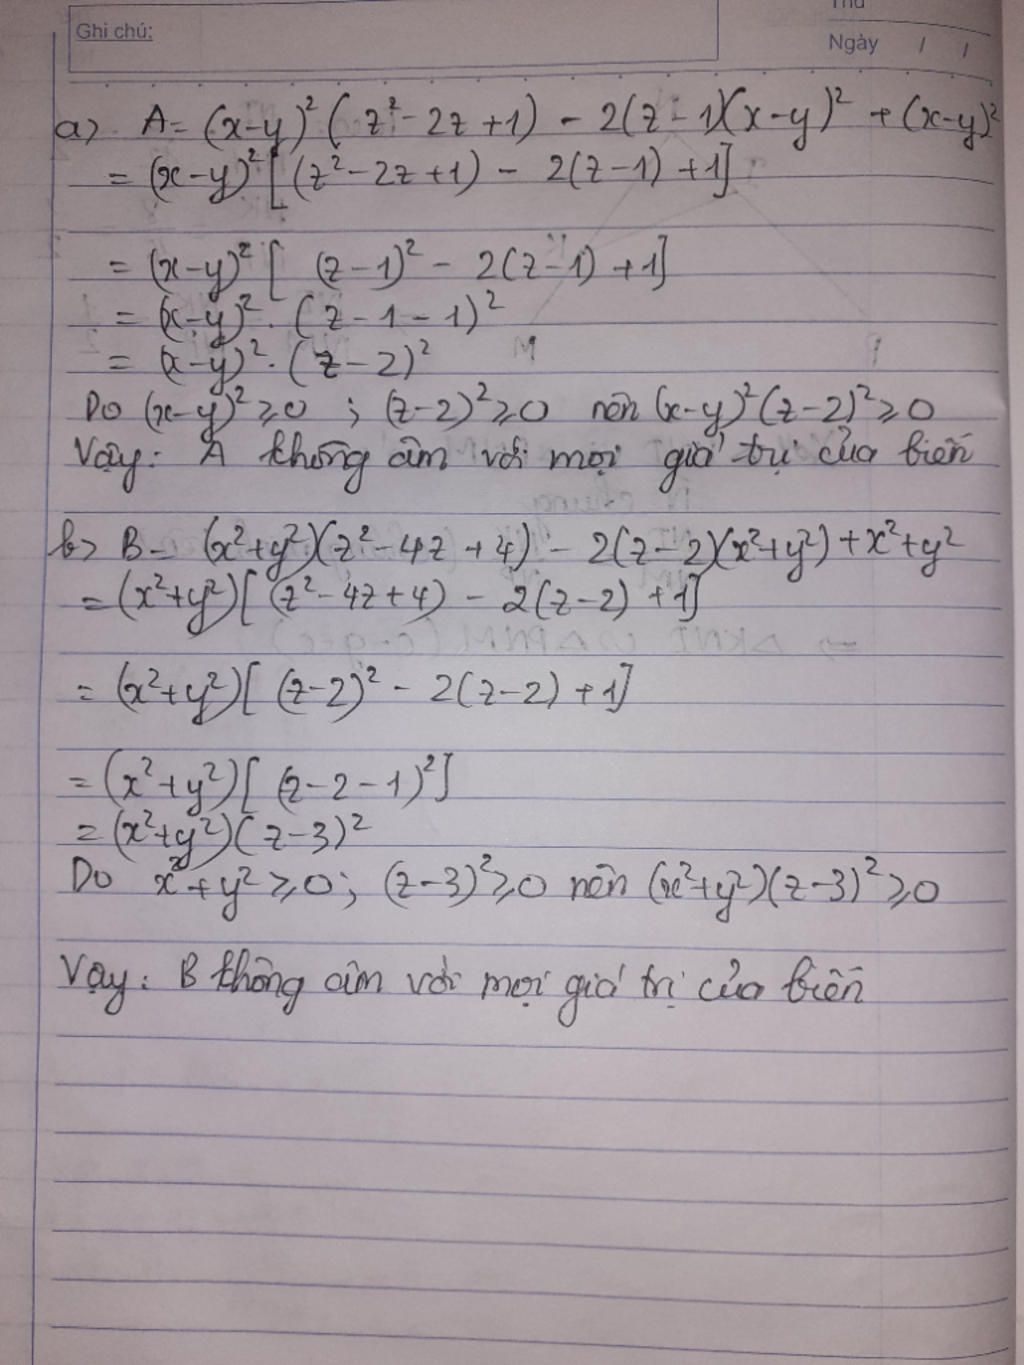 Ghi chú:
Thứ
Ngày / /
a) A = (x-y)² (z² - 2z + 1) - 2(z - 1)(x-y)² + (x-y)²
= (x-y)² [(z² - 2z + 1) - 2(z-1) + 1]
= (x-y)² [ (z-1)² - 2(z-1) + 1]
= (x-y)² . (z - 1 - 1)²
= (x-y)² . (z-2)²
Do (x-y)² ≥ 0 ; (z-2)² ≥ 0 nên (x-y)² (z-2)² ≥ 0
Vậy: A không âm với mọi giá trị của biến
b) B = (x²+y²)(z² - 4z + 4) - 2(z-2)(x²+y²) + x² + y²
= (x²+y²)[(z² - 4z + 4) - 2(z-2) + 1]
= (x²+y²)[ (z-2)² - 2(z-2) + 1]
= (x²+y²)[ (z-2-1)²]
= (x²+y²)(z-3)²
Do x²+y² ≥ 0; (z-3)² ≥ 0 nên (x²+y²)(z-3)² ≥ 0
Vậy: B không âm với mọi giá trị của biến